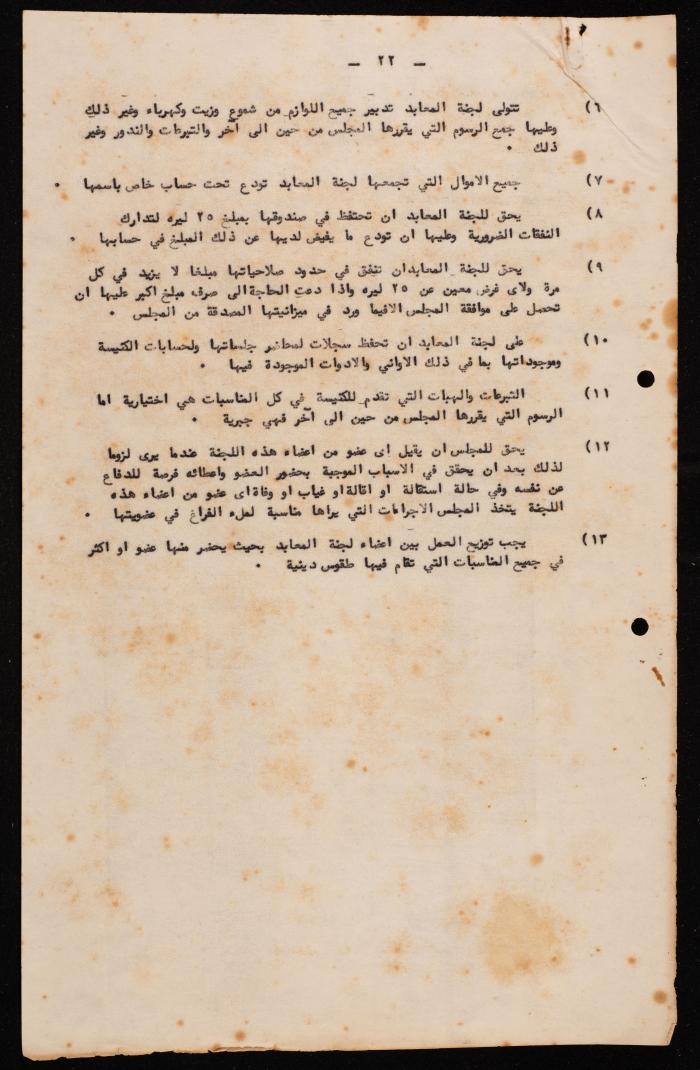 - ٢٢ -
٦) تتولى لجنة المعابد تدبير جميع اللوازم من شموع وزيت وكهرباء وغير ذلك
وعليها جمع الرسوم التي يقررها المجلس من حين الى آخر والتبرعات والندور وغير
ذلك .
٧) جميع الاموال التي تجمعها لجنة المعابد تودع تحت حساب خاص باسمها .
٨) يحق للجنة المعابد ان تحتفظ في صندوقها بمبلغ ٢٥ ليره لتدارك
النفقات الضرورية وعليها ان تودع ما يفيض لديها عن ذلك المبلغ في حسابها .
٩) يحق للجنة المعابدان تنفق في حدود صلاحياتها مبلغا لا يزيد في كل
مرة ولاى غرض معين عن ٢٥ ليره واذا دعت الحاجة الى صرف مبلغ اكبر عليها ان
تحصل على موافقة المجلس الافيما ورد في ميزانيتها المصدقة من المجلس .
١٠) على لجنة المعابد ان تحفظ سجلات لمحاضر جلساتها ولحسابات الكنيسة
وموجوداتها بما في ذلك الاواني والادوات الموجودة فيها .
١١) التبرعات والهبات التي تقدم للكنيسة في كل المناسبات هي اختيارية اما
الرسوم التي يقررها المجلس من حين الى آخر فهي جبرية .
١٢) يحق للمجلس ان يقيل اى عضو من اعضاء هذه اللجنة عندما يرى لزوما
لذلك بعد ان يحقق في الاسباب الموجبة بحضور العضو واعطائه فرصة للدفاع
عن نفسه وفي حالة استقالة او اقالة او غياب او وفاة اى عضو من اعضاء هذه
اللجنة يتخذ المجلس الاجراءات التي يراها مناسبة لملء الفراغ في عضويتها .
١٣) يجب توزيع العمل بين اعضاء لجنة المعابد بحيث يحضر منها عضو او اكثر
في جميع المناسبات التي تقام فيها طقوس دينية .